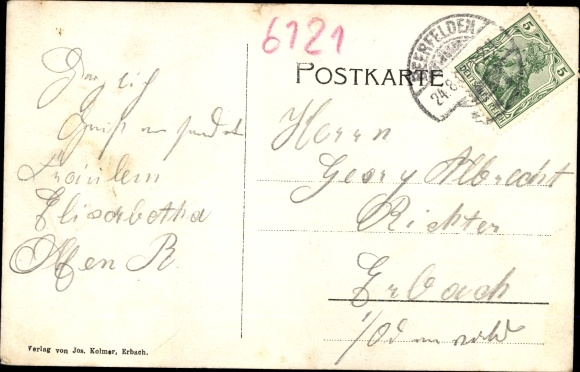 6121
BEERFELDEN
24.8.
5
5
DEUTSCHES REICH
POSTKARTE
Gruß
Fräulein
Elisabetha
R.
Herrn
Georg Albrecht
Richter
Erbach
i/Odenwald
Verlag von Jos. Kolmer, Erbach.